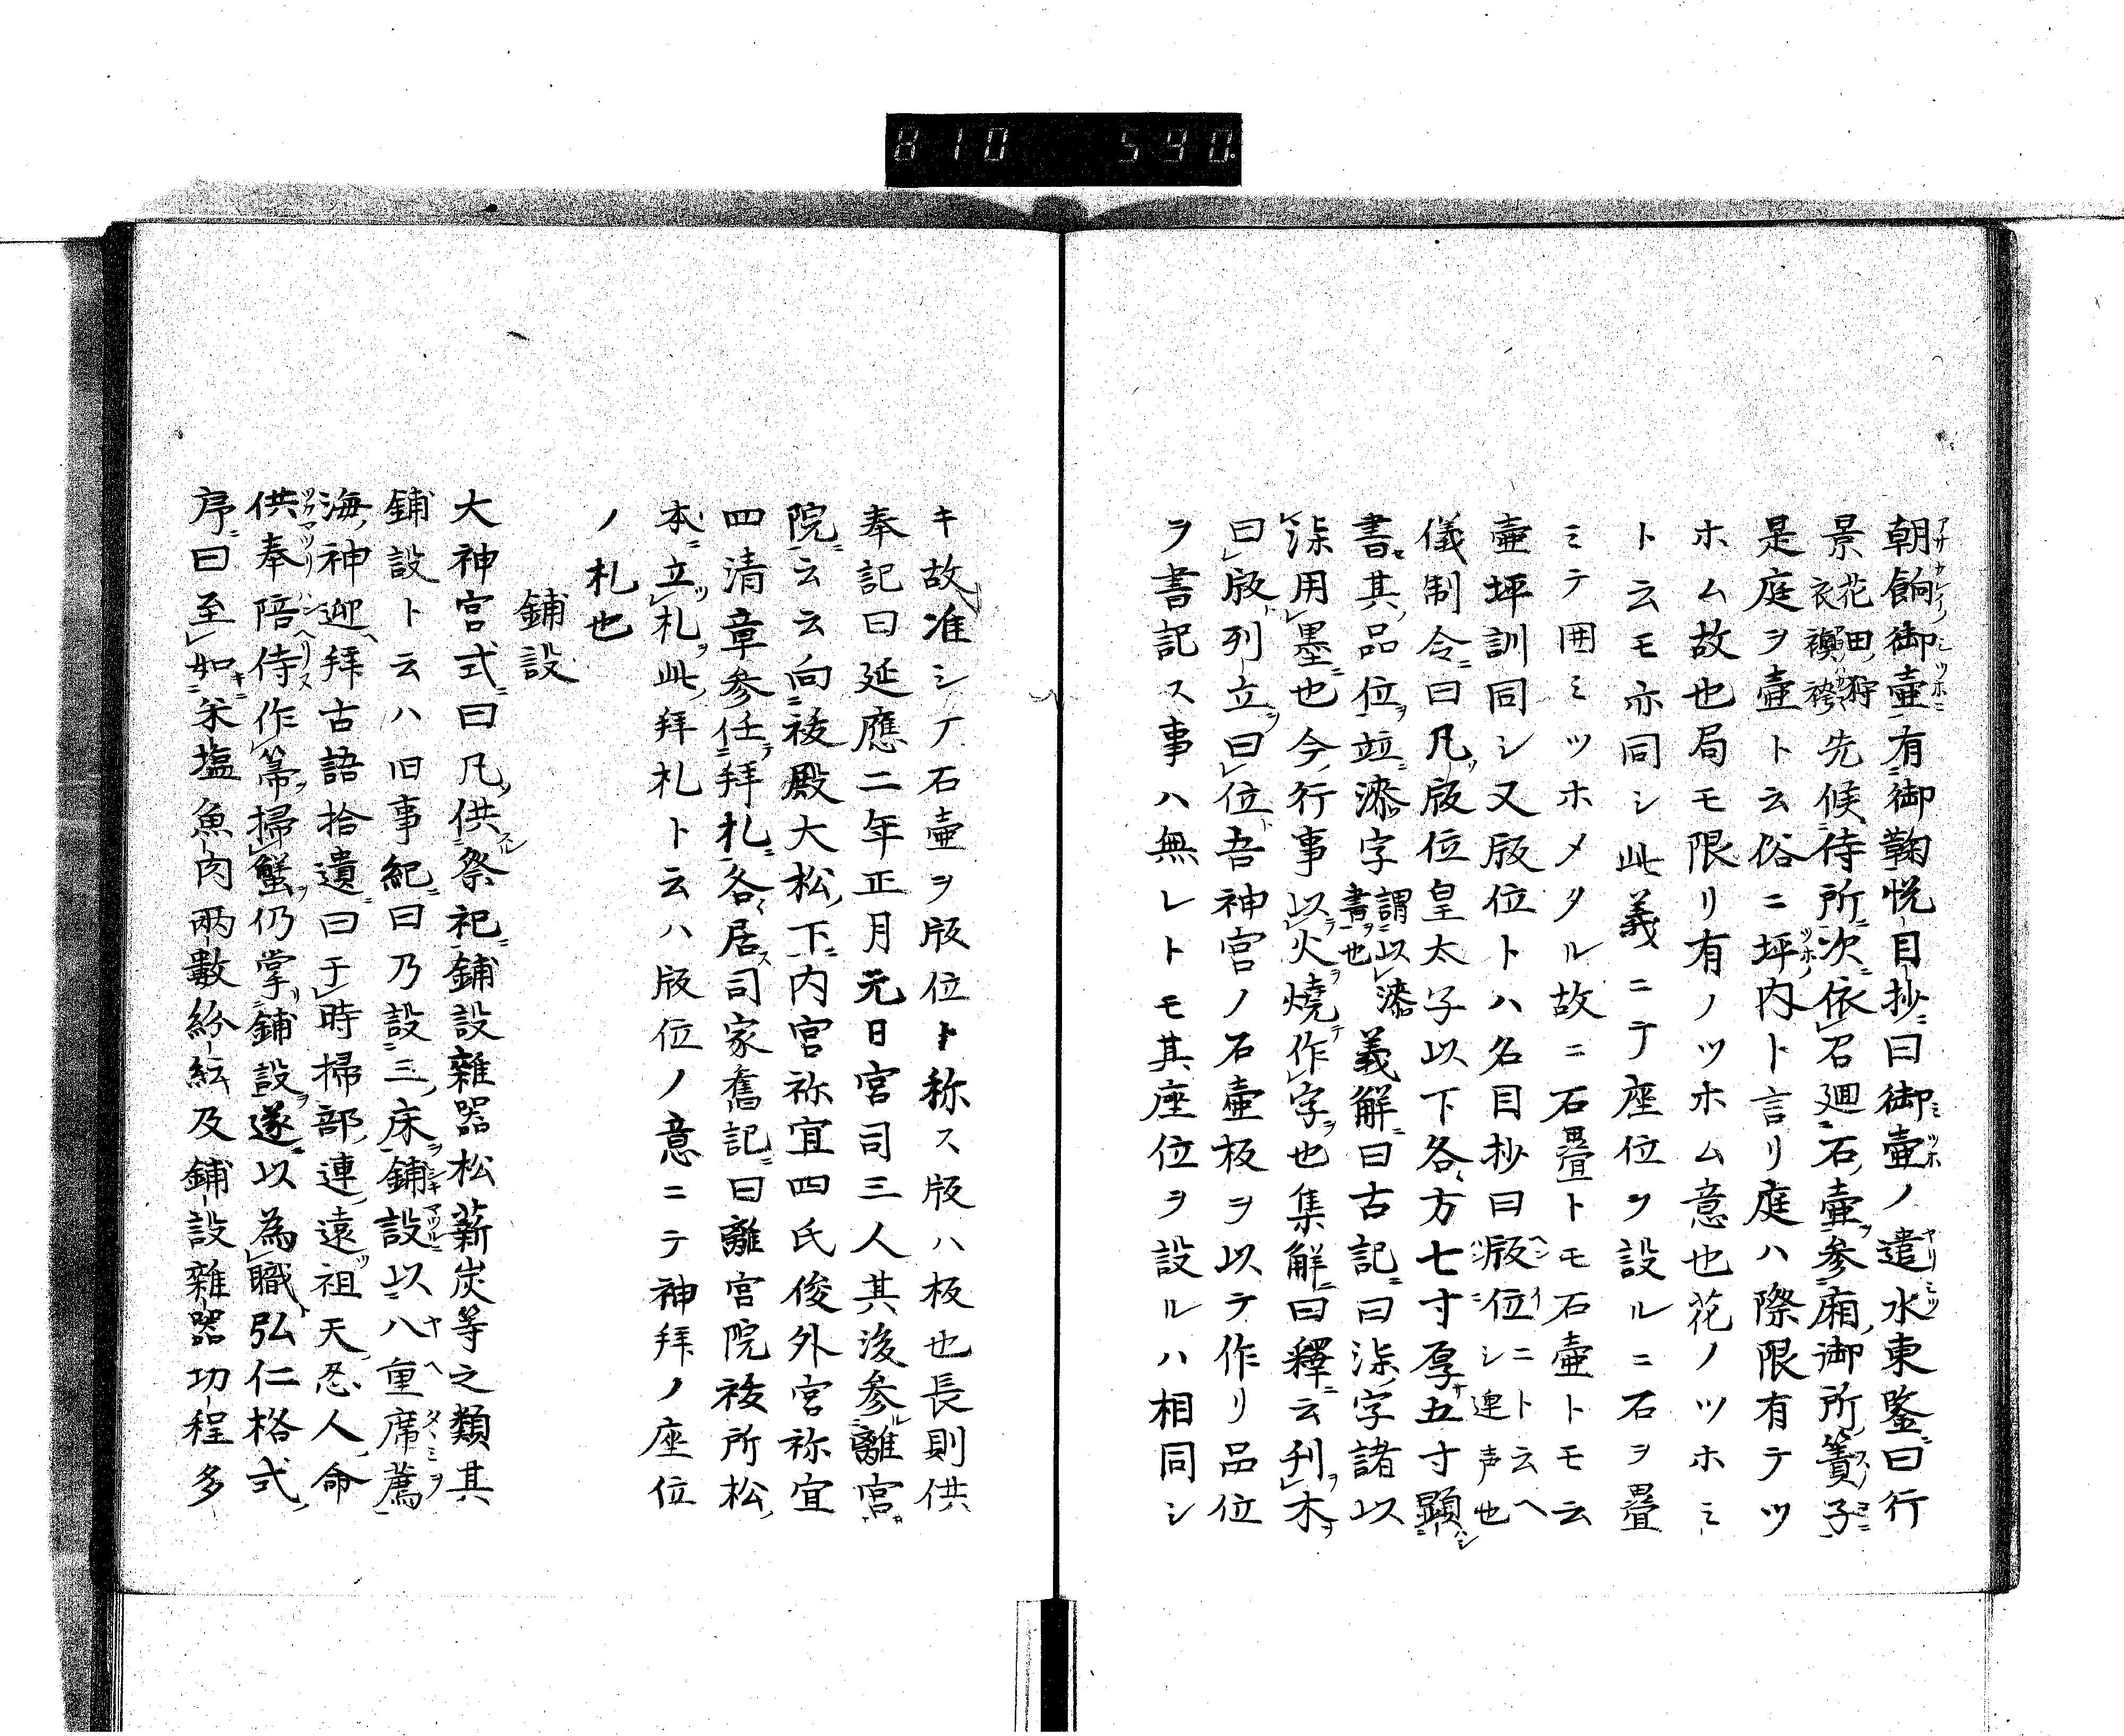 朝餉御壷有御鞠悦目抄曰御壷ノ遣水東鑒曰行
景花田狩衣襖袴先候侍所次依召廻石壷参廂御所簀子
是庭ヲ壷ト云俗ニ坪内ト言リ庭ハ際限有テツ
ホム故也局モ限リ有ノツホム意也花ノツホミ
ト云モ亦同シ此義ニテ座位ヲ設ルニ石ヲ畳
ミテ囲ミツホメタル故ニ石畳トモ石壷トモ云
壷坪訓同シ又版位トハ名目抄曰版位ニト云ヘシ連声也
儀制令曰凡版位皇太子以下各方七寸厚五寸顕
書其品位並漆字謂以漆書也義解曰古記曰柒字諸以
柒用墨也今行事以火焼作字也集解曰釋云刋木
曰版列立曰位吾神宮ノ石壷板ヲ以テ作リ品位
ヲ書記ス事ハ無レトモ其座位ヲ設ルハ相同シ
キ故准シテ石壷ヲ版位ト称ス版ハ板也長則供
奉記曰延應二年正月元日宮司三人其後参離宮
院云云向祓殿大松下内宮祢宜四氏俊外宮祢宜
四清章参任拜札各居司家舊記曰離宮院祓所松
本立札此拜札ト云ハ版位ノ意ニテ神拜ノ座位
ノ札也
鋪設
大神宮式曰凡供祭祀鋪設雜器松薪炭等之類其
鋪設ト云ハ旧事紀曰乃設三床鋪設以八重席薦
海神迎拜古語拾遺曰于時掃部連遠祖天忍人命
供奉陪侍作箒掃蟹仍掌鋪設遂以為職弘仁格式
序曰至如米塩魚肉両數紛紜及鋪設雜器功程多